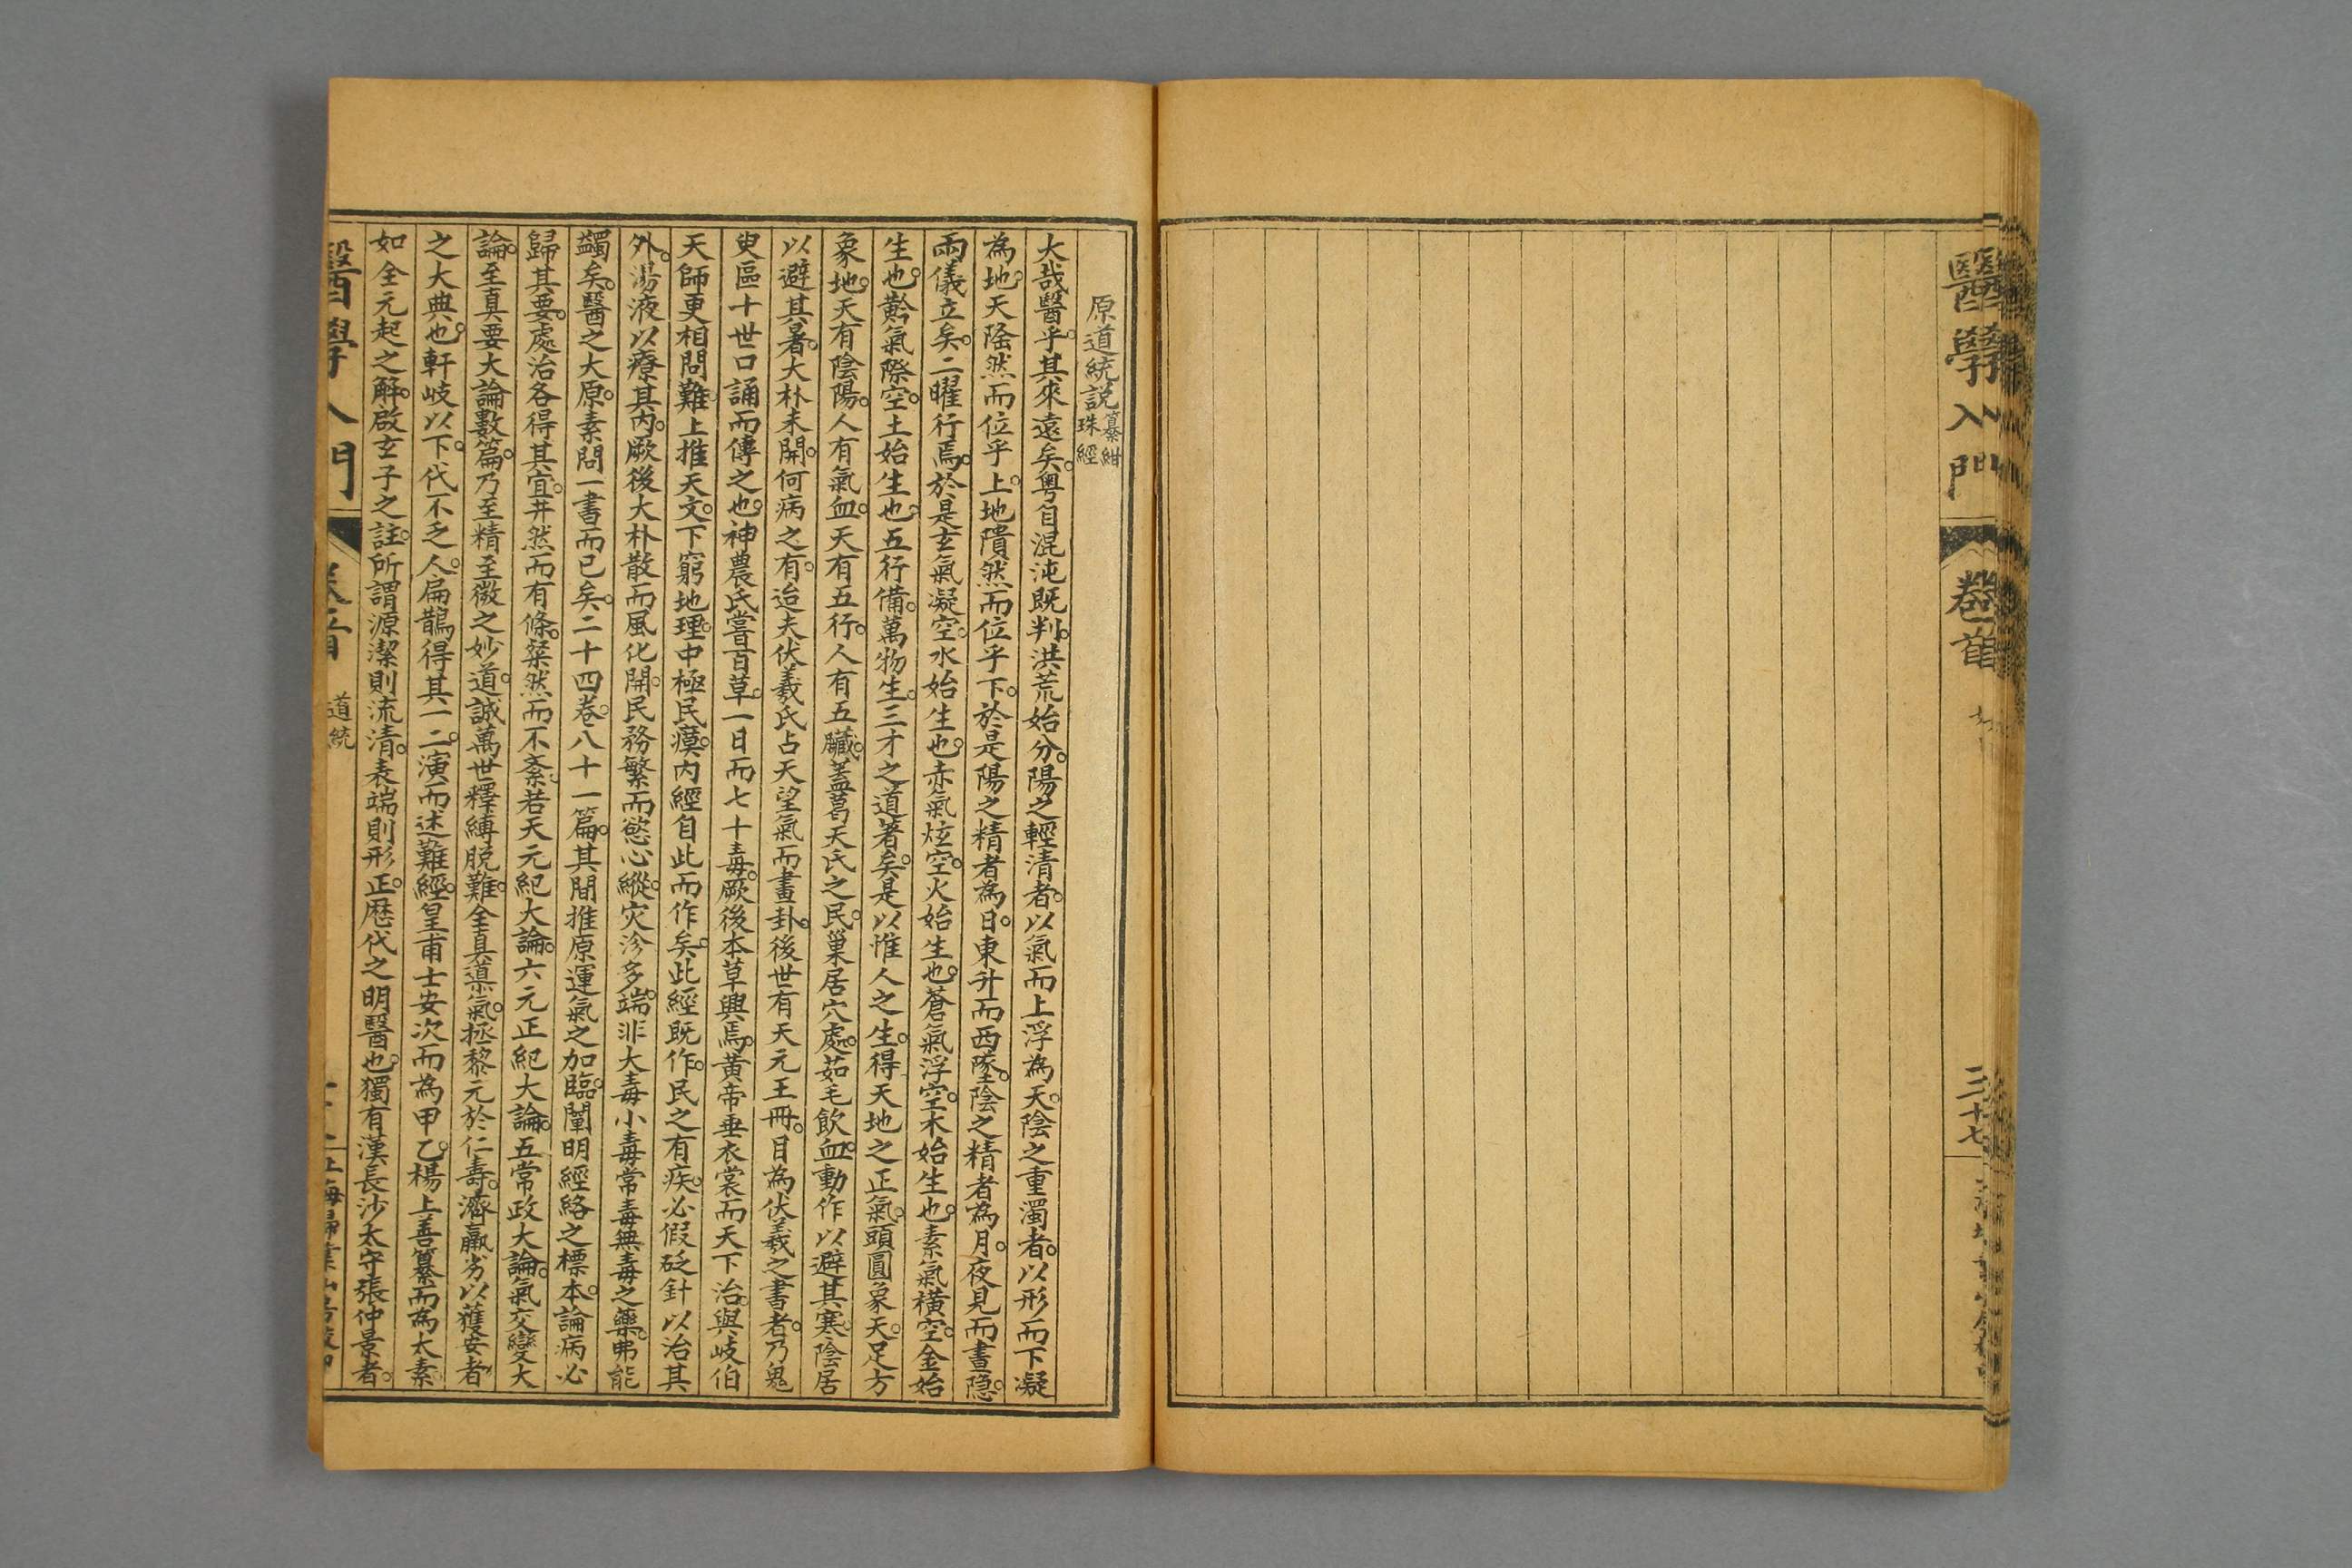 醫學入門
卷首
三十七
原道統說纂紺珠經
大哉醫乎。其來遠矣。粵自混沌既判。洪荒始分。陽之輕清者。以氣而上浮為天。陰之重濁者。以形而下凝
為地。天隆然而位乎上。地隤然而位乎下。於是陽之精者為日。東升而西墜。陰之精者為月。夜見而晝隱。
兩儀立矣。二曜行焉。於是玄氣凝空。水始生也。赤氣炫空。火始生也。蒼氣浮空。木始生也。素氣橫空。金始
生也。黅氣際空。土始生也。五行備。萬物生。三才之道著矣。是以惟人之生。得天地之正氣。頭圓象天。足方
象地。天有陰陽。人有氣血。天有五行。人有五臟。蓋葛天氏之民。巢居穴處。茹毛飲血。動作以避其寒。陰居
以避其暑。大朴未開。何病之有。迨夫伏羲氏占天望氣而畫卦。後世有天元玉冊。目為伏羲之書者。乃鬼
臾區十世口誦而傳之也。神農氏嘗百草。一日而七十毒。厥後本草興焉。黃帝垂衣裳而天下治。與岐伯
天師更相問難。上推天文。下窮地理。中極民瘼。內經自此而作矣。此經既作。民之有疾。必假砭針以治其
外。湯液以療其內。厥後大朴散而風化開。民務繁而慾心縱。灾沴多端。非大毒小毒常毒無毒之藥。弗能
蠲矣。醫之大原。素問一書而已矣。二十四卷。八十一篇。其間推原運氣之加臨。闡明經絡之標本。論病必
歸其要。處治各得其宜。井然而有條。粲然而不紊。若天元紀大論。六元正紀大論。五常政大論。氣交變大
論。至真要大論數篇。乃至精至微之妙道。誠萬世釋縛脫難。全真導氣。拯黎元於仁壽。濟羸劣以獲安者
之大典也。軒岐以下。代不乏人。扁鵲得其一二。演而述難經。皇甫士安次而為甲乙。楊上善纂而為太素
如全元起之解。啟玄子之註。所謂源潔則流清。表端則形正。歷代之明醫也。獨有漢長沙太守張仲景者。
醫學入門
卷首
道統